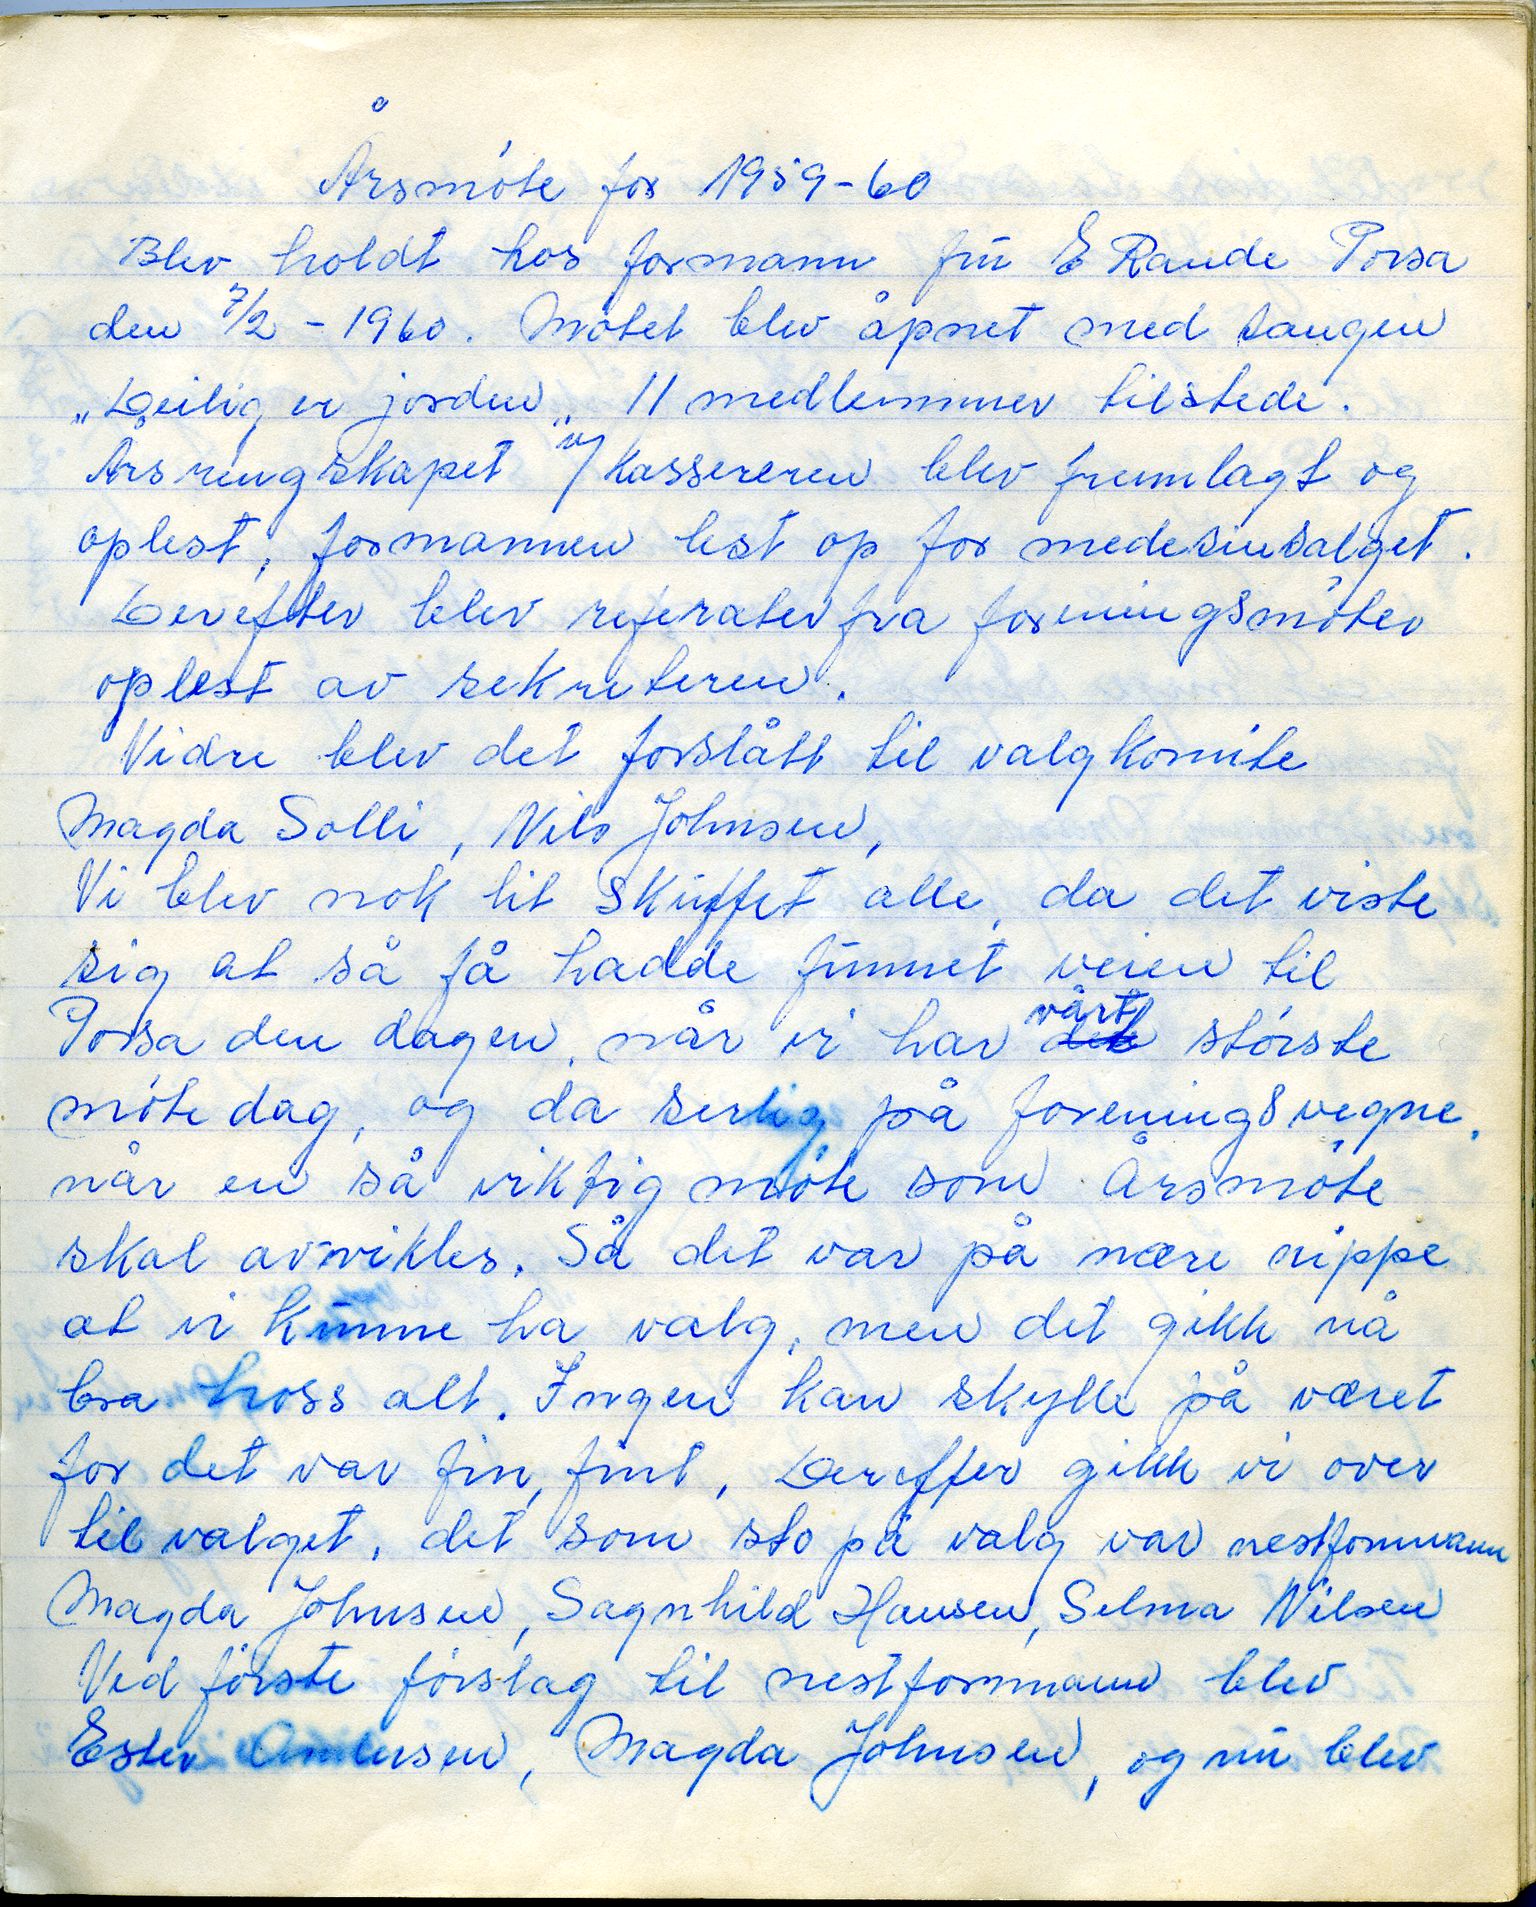 Årsmöte for 1959-60
Blev holdt hos formann frü E Rande Porsa
den 7/2 - 1960. Mötet blev åpnet med sangen
„Deilig er jorden„ 11 medlemmer tilstede.
Årsrengskapet v/ Kassereren blev fremlagt og
oplest, formannen lest op for medesinsalget.
Derefter blev referater fra foreningsmöter
oplest av sekreteren.
Vidre blev det forslått til valgkomite
Magda Solli, Nils Johnsen,
Vi blev nok lit skuffet alle, da det viste
sig at så få hadde fünnet veien til
Porsa den dagen, når vi har vårt störste
möte dag, og da serlig på foreningsvegne,
når en så viktig möte som Årsmöte
skal avvikles. Så det var på nære nippe
at vi künne ha valg, men det gikk nå
bra tross alt. Ingen kan skylle på været
for det var fin, fint, Derefter gikk vi over
til valget, det som sto på valg var nestformann
Magda Johnsen, Sagnhild Hansen, Selma Nilsen
Ved förste förslag til nestformann blev
Ester Andersen, Magda Johnsen, og nü blev